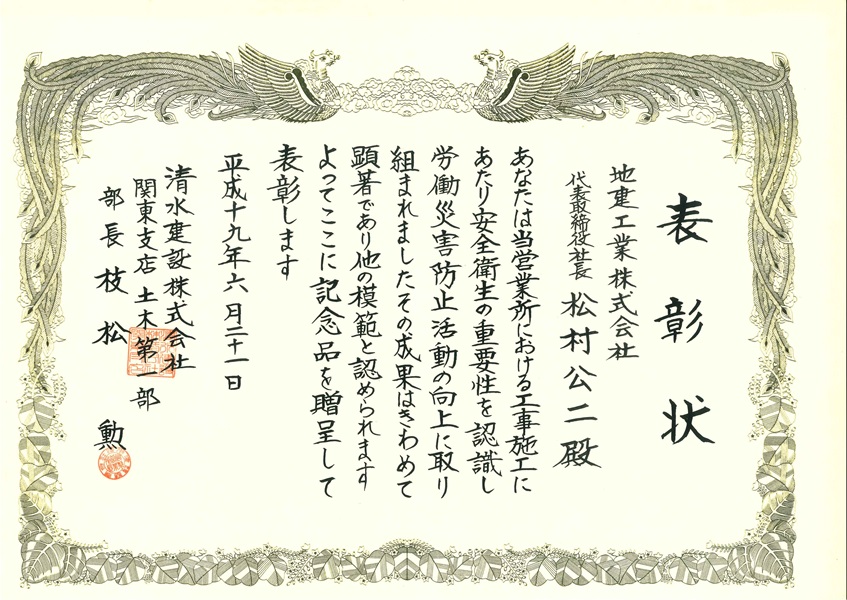 表彰状
地建工業株式会社
代表取締役社長 松村公二殿
あなたは当営業所における工事施工に
あたり安全衛生の重要性を認識し
労働災害防止活動の向上に取り
組まれましたその成果はきわめて
顕著であり他の模範と認められます
よってここに記念品を贈呈して
表彰します
平成十九年六月二十一日
清水建設株式会社
関東支店 土木第一部
部長 枝松 勲